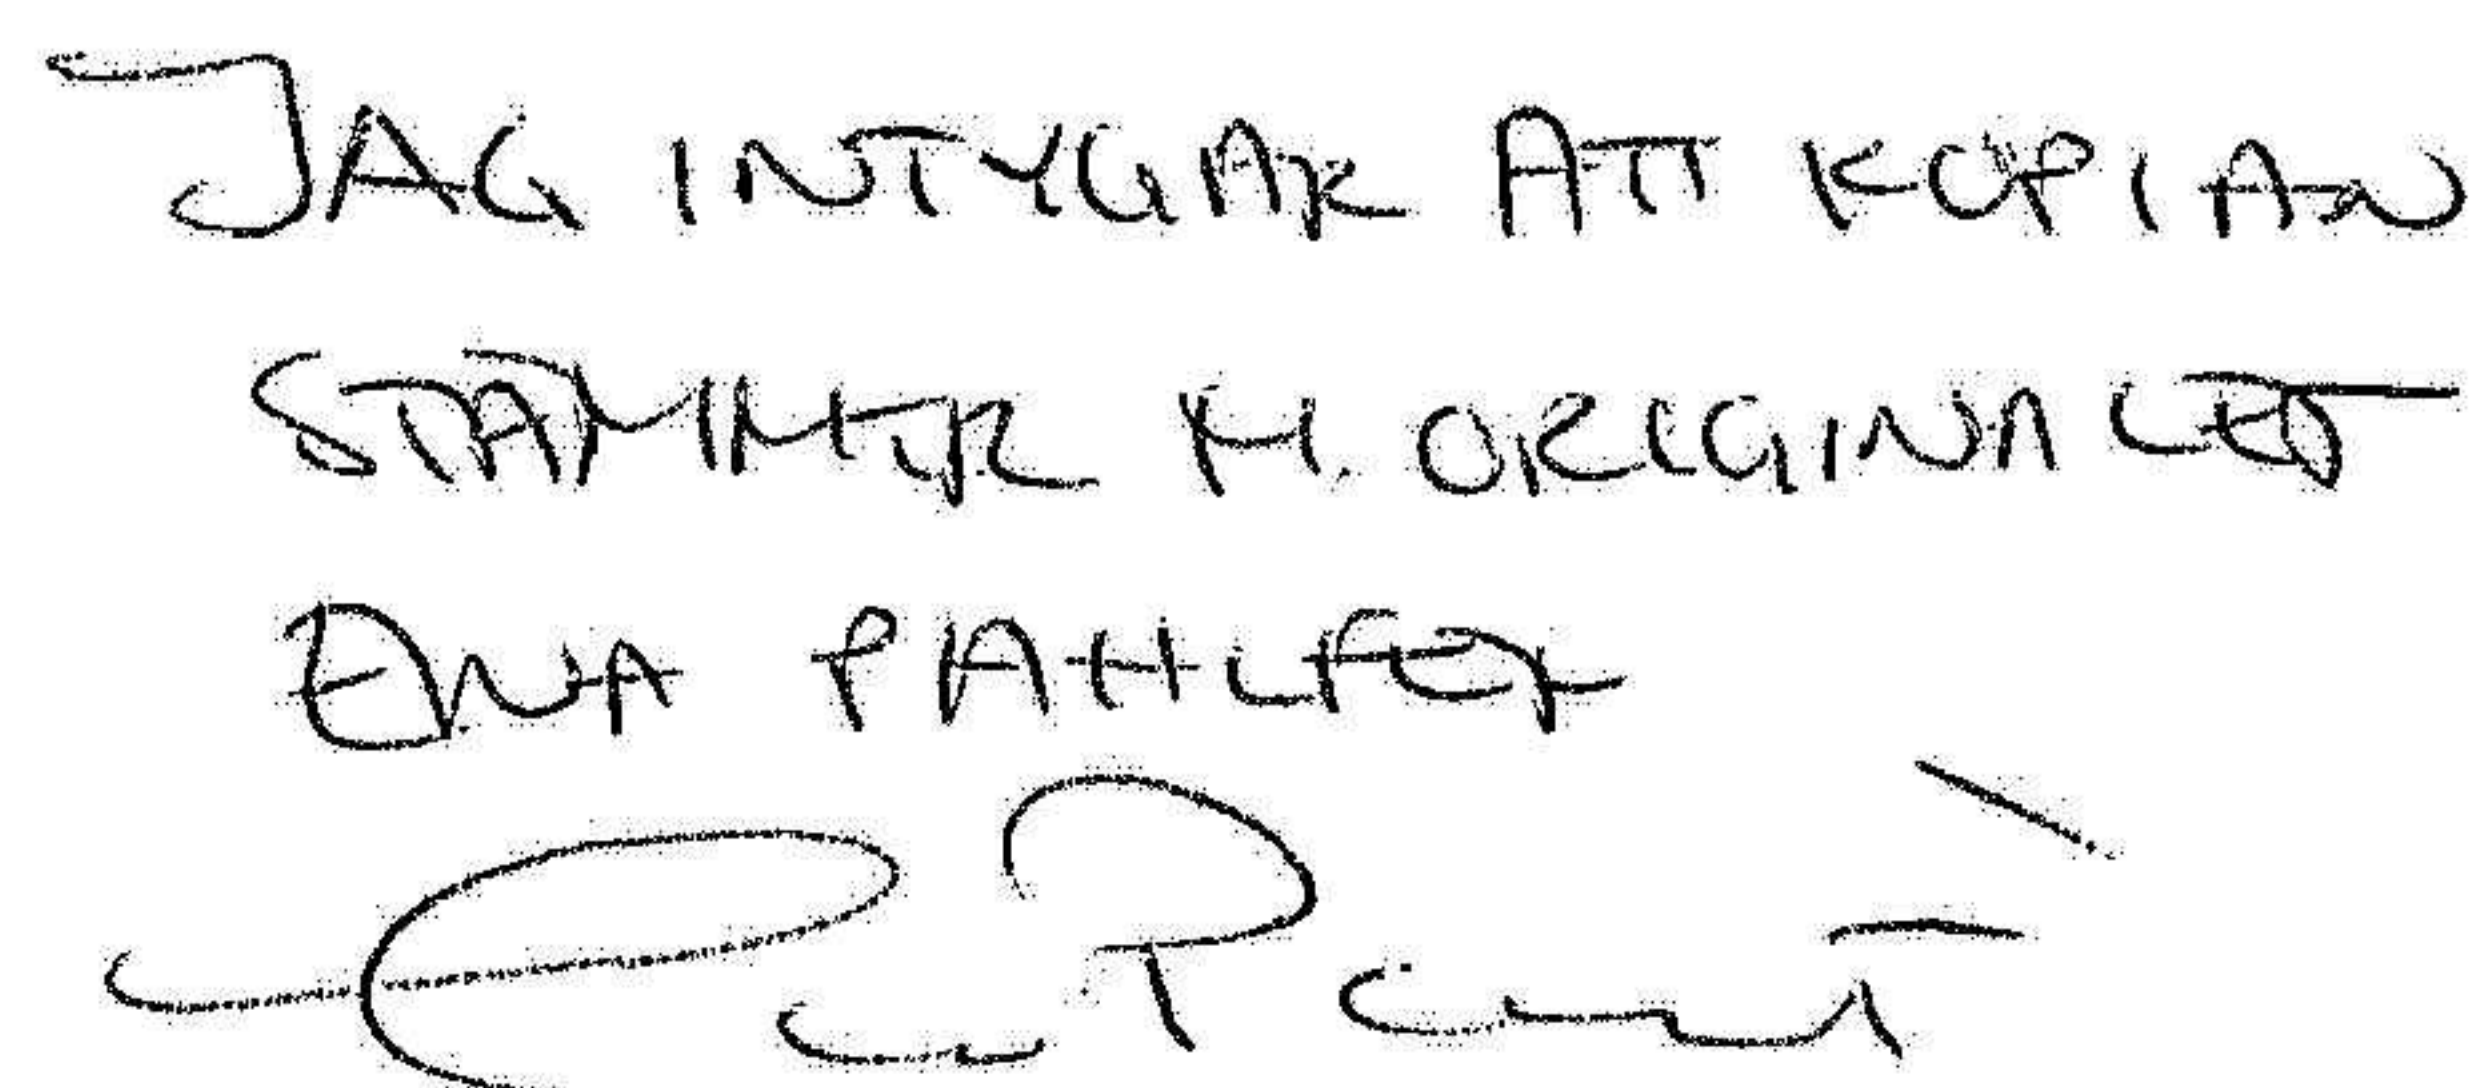 JAG INTYGAR ATT KOPIAN
STÄMMER M. ORIGINALET
EWA PAHLFEK